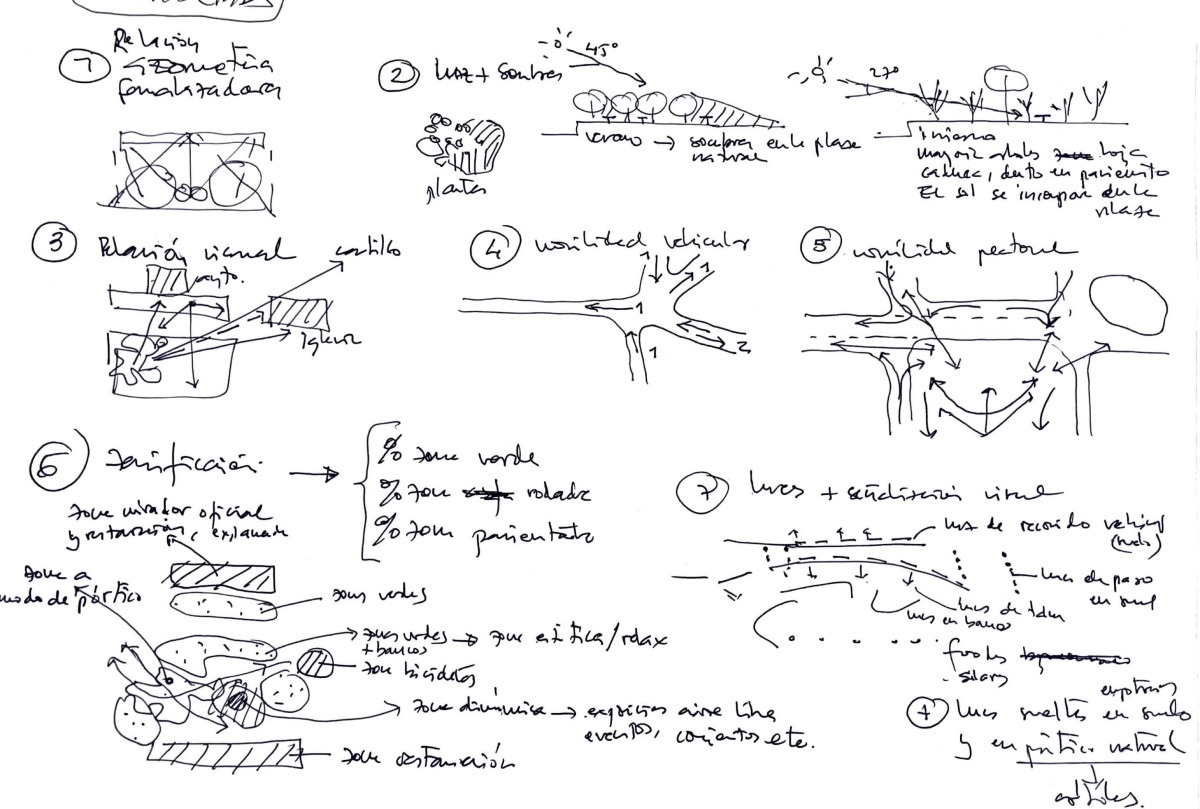 1
Relación
geometria
focalizadora
2 luz + sombras
45º
verano → sombra en la plaza
natural
planta
27º
invierno
mayoria arboles hoja
caduca, dentro en pavimento
El sol se incorpora en la
plaza
3 Relación visual
castillo
Iglesia
4 movilidad vehicular
1
1
1
2
5 movilidad peatonal
6 zonificación →
% zona verde
% zona rodada
% zona pavimentada
zona mirador oficial
y restauración, explanada
zona a
modo de pórtico
zonas verdes
zonas verdes → zona estática/relax
+ bancos
zona bicicletas
zona dinámica → exposición aire libre
eventos, conciertos etc.
zona restauración
7 luces + señalización visual
luz de recorrido vehicular
(suelo)
luces de paso
en suelo
luces en banco
focos
solares
luces sueltas en suelo
y en pórtico natural
árboles.